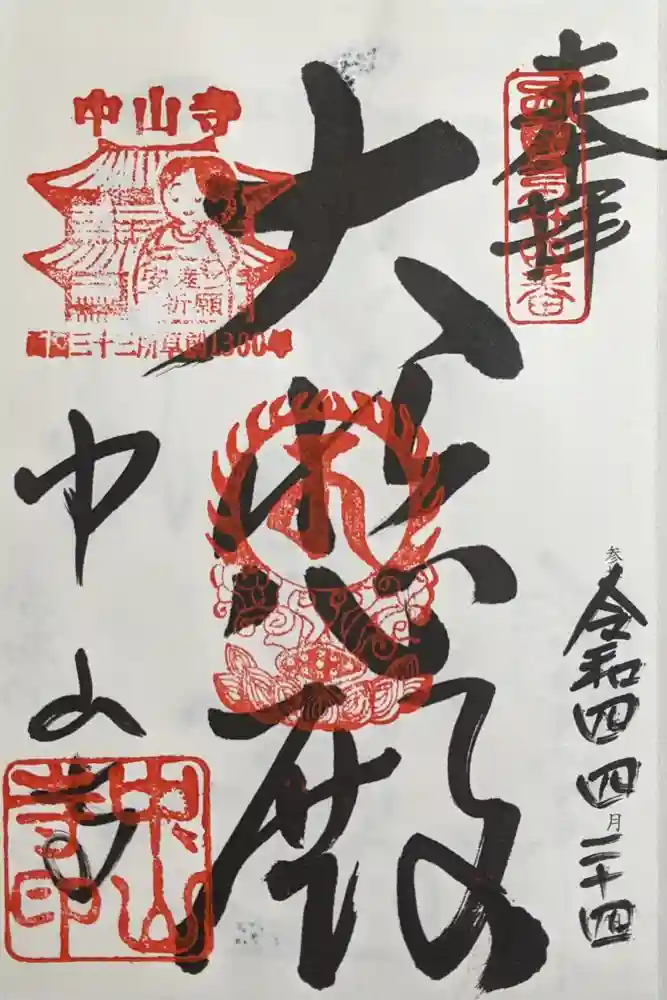 奉拝
西国第廿四番
参
令和四
四月二十四
大悲殿
中山寺
安産
祈願
西国三十三所草創1300年
中山寺
中山
寺印